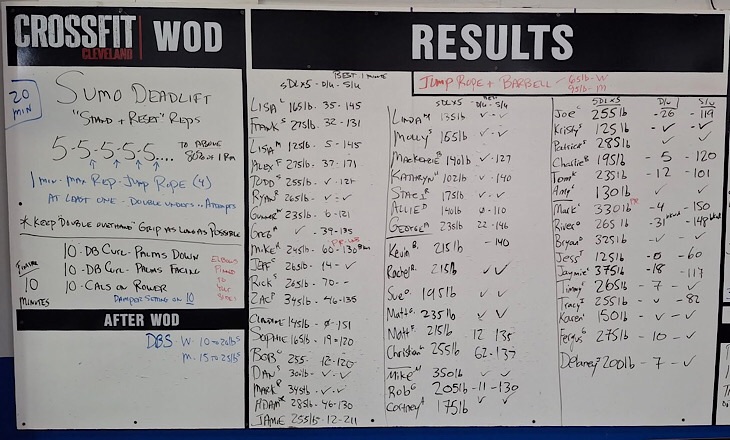 CROSSFIT
CLEVELAND
WOD
20 MIN
SUMO DEADLIFT
"STAND + RESET" REPS
5-5-5-5-5.... TO ABOVE 80% OF 1RM
1 MIN - MAX REP - JUMP ROPE (4)
AT LEAST ONE - DOUBLE UNDERS .. ATTEMPTS
* KEEP "DOUBLE OVERHAND" GRIP AS LONG AS POSSIBLE
10 MINUTES
10 - DB CURL - PALMS DOWN
10 - DB CURL - PALMS FACING
10 - CALS ON ROWER
DAMPER SETTING ON 10
ELBOWS PINNED TO THE SIDE!
AFTER WOD
DBS W: 10 to 20lbs
M: 15 to 25lbs
RESULTS
JUMP ROPE + BARBELL - 65lb - W
95lb - M
BEST 1 MINUTE
SDLx5 - D/U - S/U
LISA L 165lb - 35 - 145
FRANK S 275lb - 32 - 131
LISA M 125lb - 5 - 145
ALEX F 275lb - 37 - 171
TODD S 255lb - ✓ - 127
RYAN R 265lb - ✓ - ✓
GUNNAR 235lb - 6 - 121
GREG ✓ - 39 - 135
MIKE 245lb - 60 - 130
JEFF 265lb - 14 - ✓
RICK 265lb - 70 - -
ZAC 345lb - 46 - 135
145lb - 0 - 151
SOPHIE 165lb - 19 - 120
BOB 255 - 12 - 120
DAN 301lb - ✓ - ✓
MARK 345lb - ✓ - ✓
ADAM 285lb - 46 - 130
JAMIE 255lb - 12 - 211
SDLx5 D/U - S/U
LINDA M 135lb ✓ - ✓
MOLLY 165lb ✓ - ✓
MACKENZIE 140lb ✓ - 127
KATHRYN 140lb ✓ - 140
STACI R 175lb ✓ - ✓
ALLIE D 140lb 0 - 110
GEORGE 235lb 22 - 146
Kevin 215lb - 140
Rachel 215lb ✓ ✓
Sue 195lb ✓ ✓
Matt 235lb ✓ ✓
Matt 215lb 12 135
Christian 255lb 62 - 137
Mike 350lb ✓ ✓
Rob G 205lb - 11 - 130
Cortney 175lb ✓ ✓
SDLx5 D/U S/U
Joe 255lb - 26 - 119
Kristy 125lb ✓ ✓
Patrick 285lb ✓ ✓
Charlie 195lb - 5 - 120
Tom 235lb - 12 - 101
Amy 130lb ✓ ✓
Mark 330lb PR - 4 - 150
River 265lb - 31 - 148
Bryan 325lb ✓ ✓
Jess 125lb - 0 - 60
Jaymie 375lb - 18 - 117
Timmy 265lb - 7 - ✓
Tracy 255lb ✓ - 82
Karen 150lb ✓ - ✓
Fergus 275lb - 10 - ✓
Delaney 200lb - 7 - ✓